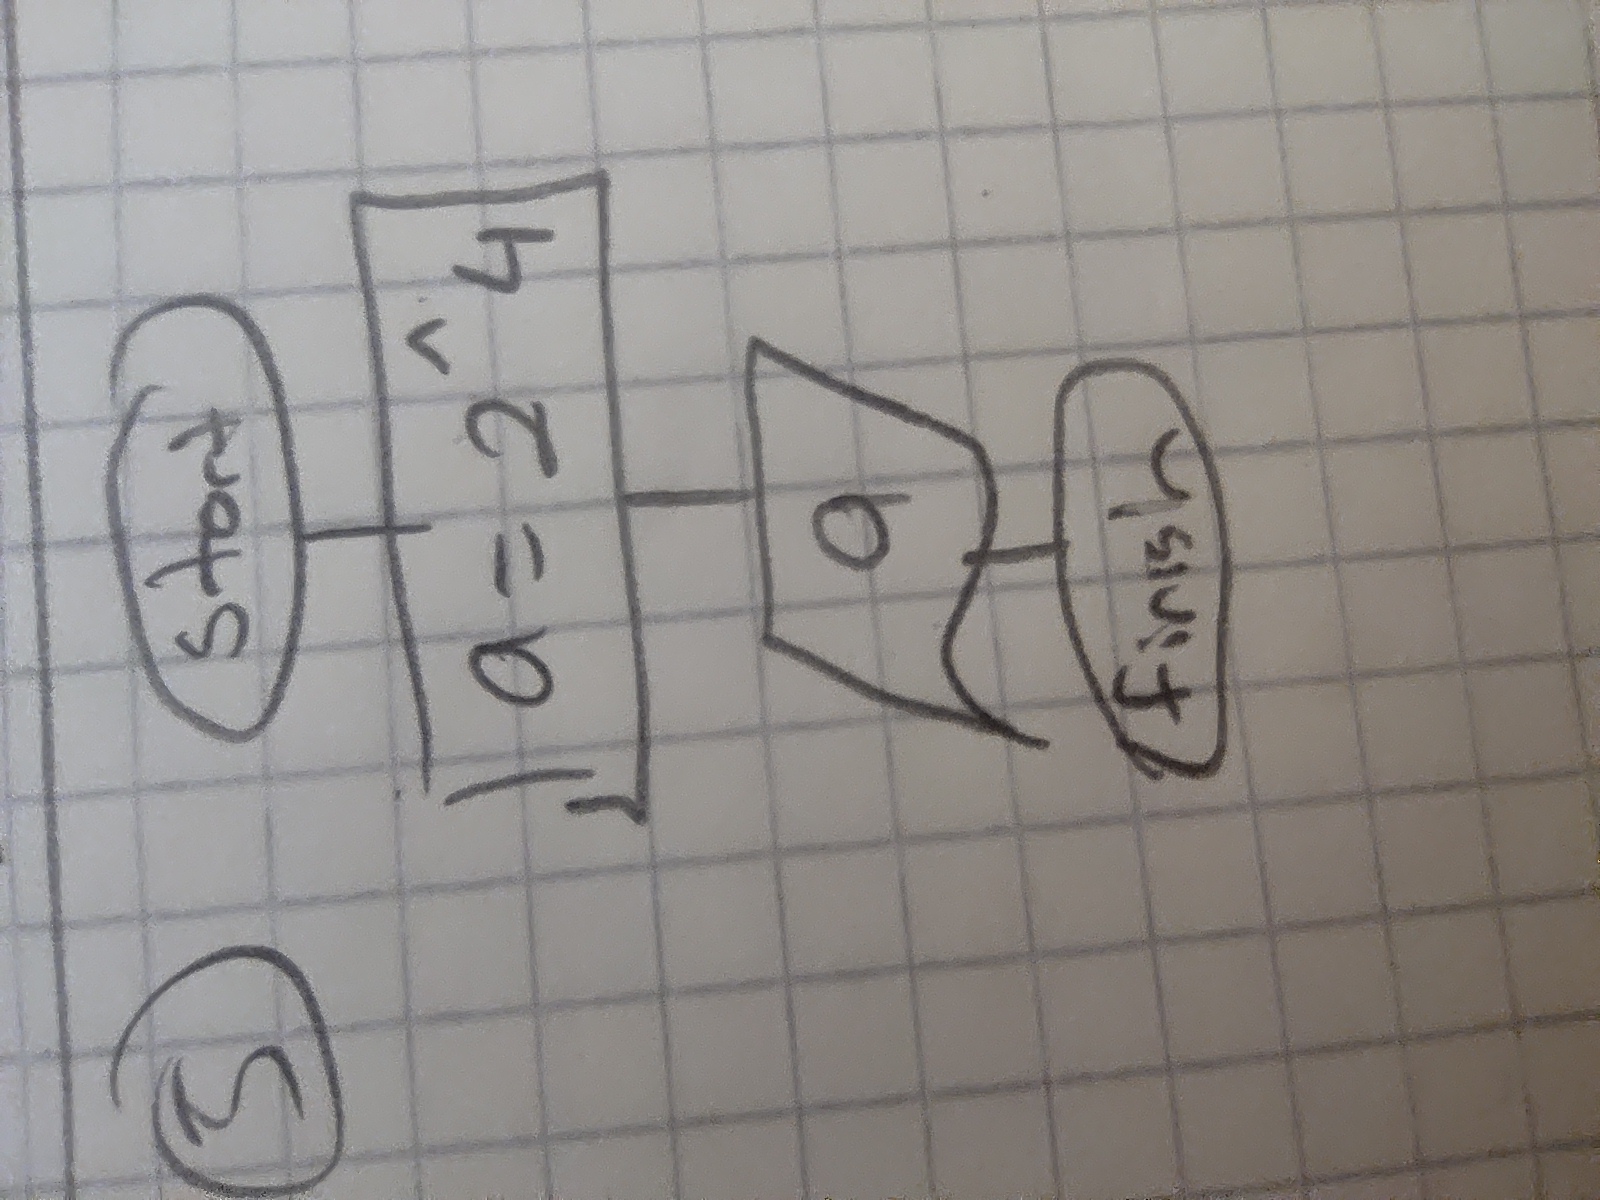 5
Start
a = 2 ^ 4
a
finish